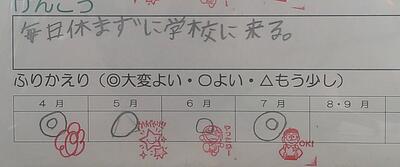 けんこう
毎日休まずに学校に来る。
ふりかえり（◎大変よい・○よい・△もう少し）
4月 5月 6月 7月 8・9月
◎ ○ ◎ ◎
OK!